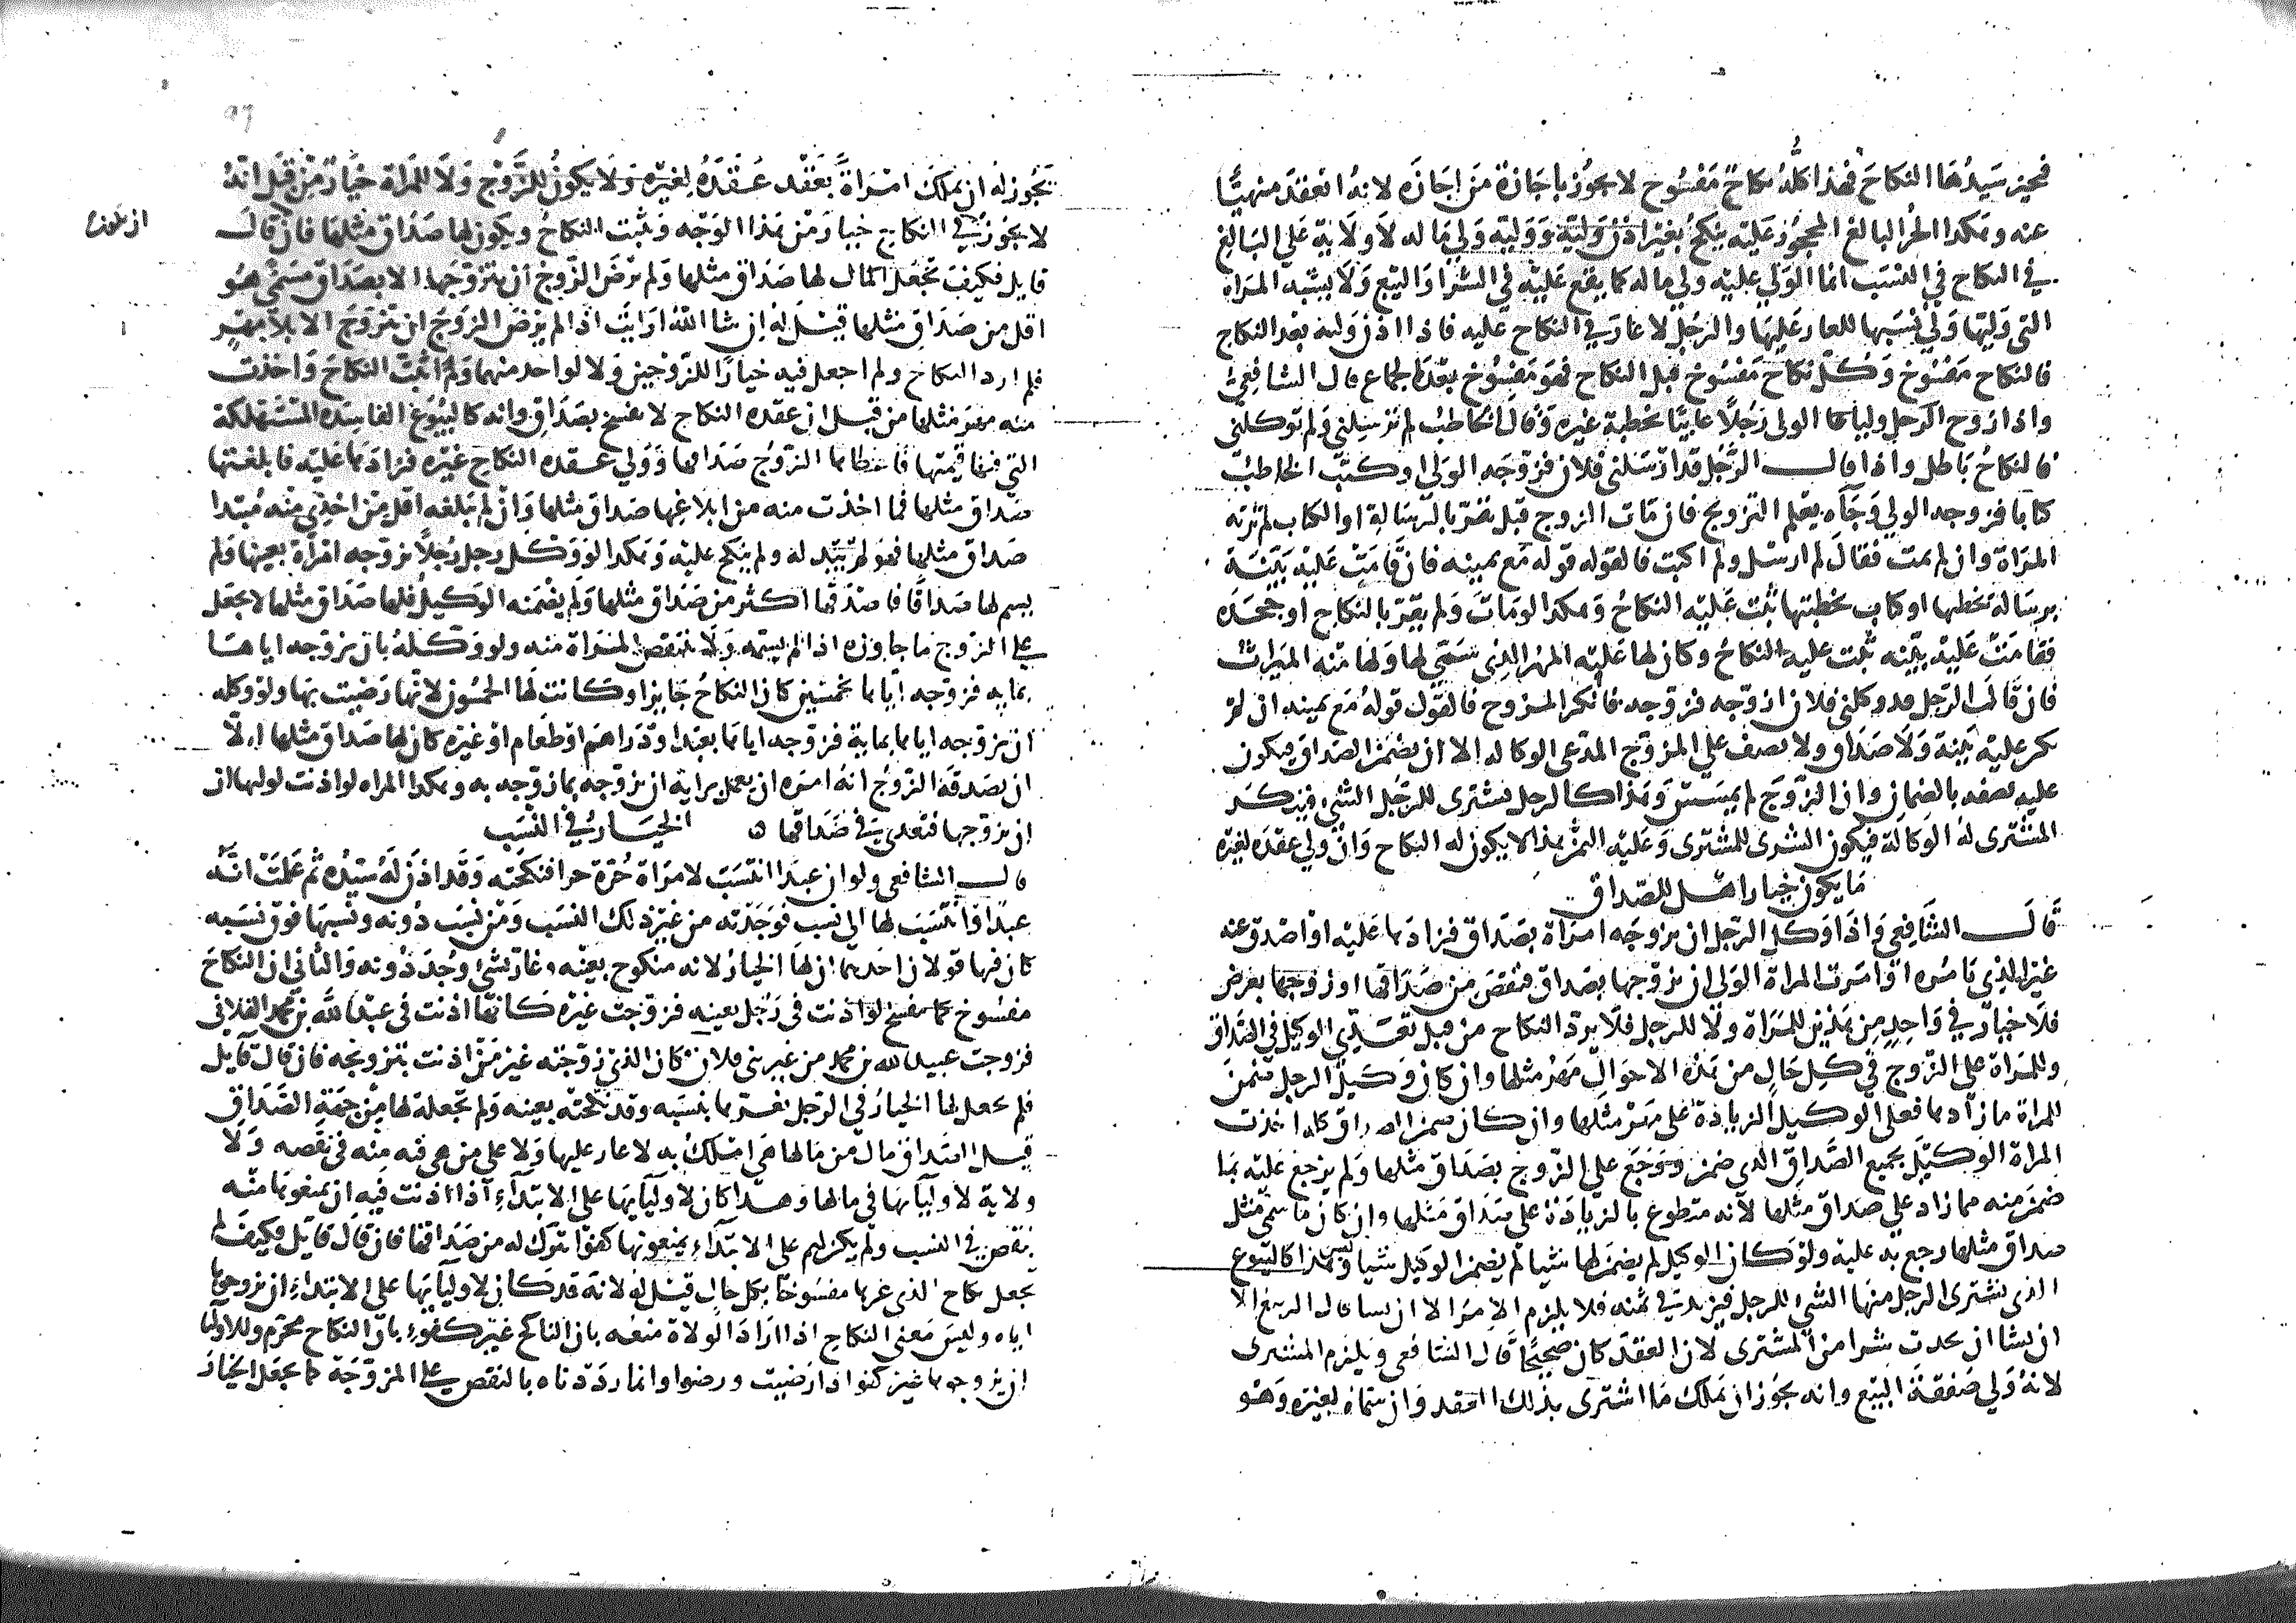 فيجيز سيدها النكاح فهذا كله نكاح مفسوخ لا يجوز باجازة من اجازه لانه انعقد منهيا
عنه وهكذا الحر البالغ المحجور عليه ينكح بغير اذن وليه ووليه ولي ماله لا ولاية على البالغ
في النكاح في النسب انما الولي عليه ولي ماله كما يقع عليه في الشرا والبيع ولا يشبه المراة
التي وليها ولي نسبها للعار عليها والرجل لا عار في النكاح عليه فاذا اذن وليه بعد النكاح
فالنكاح مفسوخ وكل نكاح مفسوخ قبل النكاح فهو مفسوخ بعد الجماع قال الشافعي
واذا زوج الرجل وليا الولي رجلا غايبا بخطبة غيره وقال الخاطب لم ترسلني ولم توكلني
فالنكاح باطل واذا قال الرجل قد ارسلني فلان فزوجه الولي او كتب الخاطب
كتابا فزوجه الولي وجاه بعلم التزويج فان مات الزوج قبل يقر بالرسالة او الكتاب لم ترثه
المراة وان لم يمت فقال لم ارسل ولم اكتب فالقول قوله مع يمينه فان قامت عليه بينة
برسالة بخطبها او كتاب بخطبتها ثبت عليه النكاح وهكذا لو مات ولم يقر بالنكاح او جحده
فقامت عليه بينه ثبت عليه النكاح وكان لها عليه المهر الذي سمي لها ولها منه الميراث
فان قال الرجل قد وكلني فلان ازوجه فزوجه فانكر المزوج فالقول قوله مع يمينه ان لم
يكن عليه بينة ولا صداق ولا نصف على المزوج المدعي الوكالة الا ان يضمن الصداق فيكون
عليه نصفه بالضمان وان الزوج لم يمسس وهذا كالرجل يشتري للرجل الشي فينكر
المشترى له الوكالة فيكون الشرى للمشتري وعليه الثمن هذا لا يكون له النكاح وان ولي عقده لغيره
ما يكون خيارا قبل الصداق
قال الشافعي واذا وكل الرجل ان يزوجه امراة بصداق فزادها عليه او اصدق عنه
غير الذي يامره او امرت المراة الولي ان يزوجها بصداق فنقص من صداقها او زوجها بعرض
فلا خيار في واحد من هذين للمراة ولا للرجل فلا يرد النكاح من قبل تعدي الوكيل في الصداق
وللمراة على الزوج في كل حال من هذه الاحوال مهر مثلها وان كان وكيل الرجل ضمن
للمراة ما زادها فعلى الوكيل الزيادة على مهر مثلها وان كان ضمن الصداق كله اخذت
المراة الوكيل بجميع الصداق الذي ضمن ورجع على الزوج بصداق مثلها ولم يرجع عليه بما
ضمن منه مما زاد على صداق مثلها لانه متطوع بالزيادة على صداق مثلها وان كان ما سمي مثل
صداق مثلها رجع به عليه ولو كان الوكيل لم يضمن لها شيا لم يضمن الوكيل شيا وليس هذا كالبيوع
الذي يشتري الرجل منها الشي للرجل فيزيد في ثمنه فلا يلزم الامر الا ان يشا قال الربيع الا
ان يشا ان يحدث شرا من المشتري لان العقد كان صحيحا قال الشافعي ويلزم المشتري
لانه ولي صفقة البيع وانه يجوز ان يملك ما اشترى بذلك العقد وان سماه لغيره وهو
يجوز له ان يملك امراة بعقد عقده لغيره ولا يكون للزوج ولا للمراة خيار من قبل انه
لا يجوز في النكاح خيار من هذا الوجه ويثبت النكاح ويكون لها صداق مثلها فان قال
قايل فكيف تجعل المال لها صداق مثلها ولم يرض الزوج ان يتزوجها الا بصداق مسمى هو
اقل من صداق مثلها قيل له ان شا الله ارايت اذا لم يرض الزوج ان يتزوج الا بلا مهر
فلم ارد النكاح ولم اجعل فيه خيارا للزوجين ولا لواحد منهما ولم اثبت النكاح واخذت
منه مهر مثلها من قبل ان عقده النكاح لا يفسخ بصداق وانه كالبيوع الفاسدة المستهلكة
التي فيها قيمتها فاعطاها الزوج صداقها وولي عقدة النكاح غيره فزادها عليه فابلغتها
صداق مثلها فما اخذت منه من ابلاغها صداق مثلها وان لم يبلغه اقل من اخذي منه مبتدا
صداق مثلها فهو لم يبتد له ولم ينكح عليه وهكذا لو وكل رجل رجلا يزوجه امراة بعينها ولم
يسم لها صداقا فاصدقها اكثر من صداق مثلها ولم يضمنه الوكيل فلها صداق مثلها لا يجعل
على الزوج ما جاوزه اذا لم يسمه ولا تنتقص المراة منه ولو وكله بان يزوجه اياها
بمايه فزوجه اياها بخمسين كان النكاح جايزا وكانت لها الخمسون لانها رضيت بها ولو وكله
ان يزوجه اياها بماية فزوجه اياها بعبد او دراهم او طعام او غيره كان لها صداق مثلها الا
ان يصدقه الزوج انه امره ان يعمل برايه ان يزوجه بما زوجه به وهكذا المراه لو اذنت لوليها ان
ان يزوجها فتعدي في صداقها ه الخيار في النسب
قال الشافعي ولو ان عبدا انتسب لامراة حرة حرا فنكحته وقد اذن له سيده ثم علمت انه
عبد او انتسب لها الى نسب فوجدته من غير ذلك النسب ومن نسب دونه ونسبها فوق نسبه
كان فيها قولان احدهما ان لها الخيار لانه منكوح بعينه وغار بشي وجد دونه والثاني ان النكاح
مفسوخ كما يفسخ لو اذنت في رجل بعينه فزوجت غيره كانها اذنت في عبد الله بن محمد الفلاني
فزوجت عبيد الله بن محمد من غير بني فلان فكان الذي زوجته غير من اذنت بتزويجه فان قال قايل
فلم تجعل لها الخيار في الرجل يغرها بنسبه وقد نكحته بعينه ولم تجعله لها من جهة الصداق
قيل الصداق مال من مالها هي املك به لا عار عليها ولا على من هي فيه منه في نقصه ولا
ولاية لاوليايها في مالها وهذا كان لاوليايها على الابتداء اذا اذنت فيه ان يمنعوها منه
بنقص في النسب ولم يكن لهم على الابتداء يمنعونها كفوا تترك له من صداقها فان قال قايل فكيف لم
يجعل نكاح الذي غرها مفسوخا بكل حال قيل له لانه قد كان لاوليايها على الابتداء ان يزوجوها
اياه وليس معنى النكاح اذا اراد الولاة منعه بان الناكح غير كفوء بان النكاح محرم وللاوليا
ان يزوجوها غير كفوا اذا رضيت ورضوا وانما رددناه بالنقص على المزوجة كما يجعل الخيار